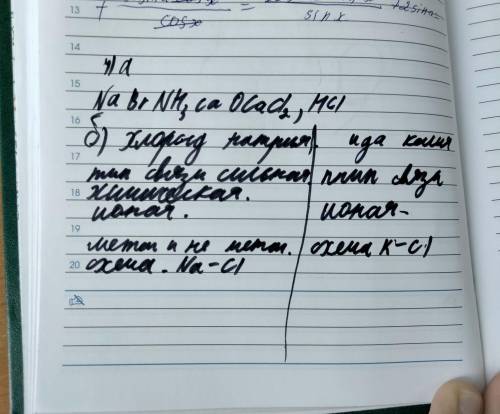 13
sin x
+2sin
cosx
14
4) a
15
NaBr NH3 Ca O CaCl2, HCl
16
б) хлорид натрия, ида калия
17
тип связи сильная тип связи
18 химическая.
ионая. ионая-
19
метал и не метал. схема K-Cl
20 схема. Na-Cl